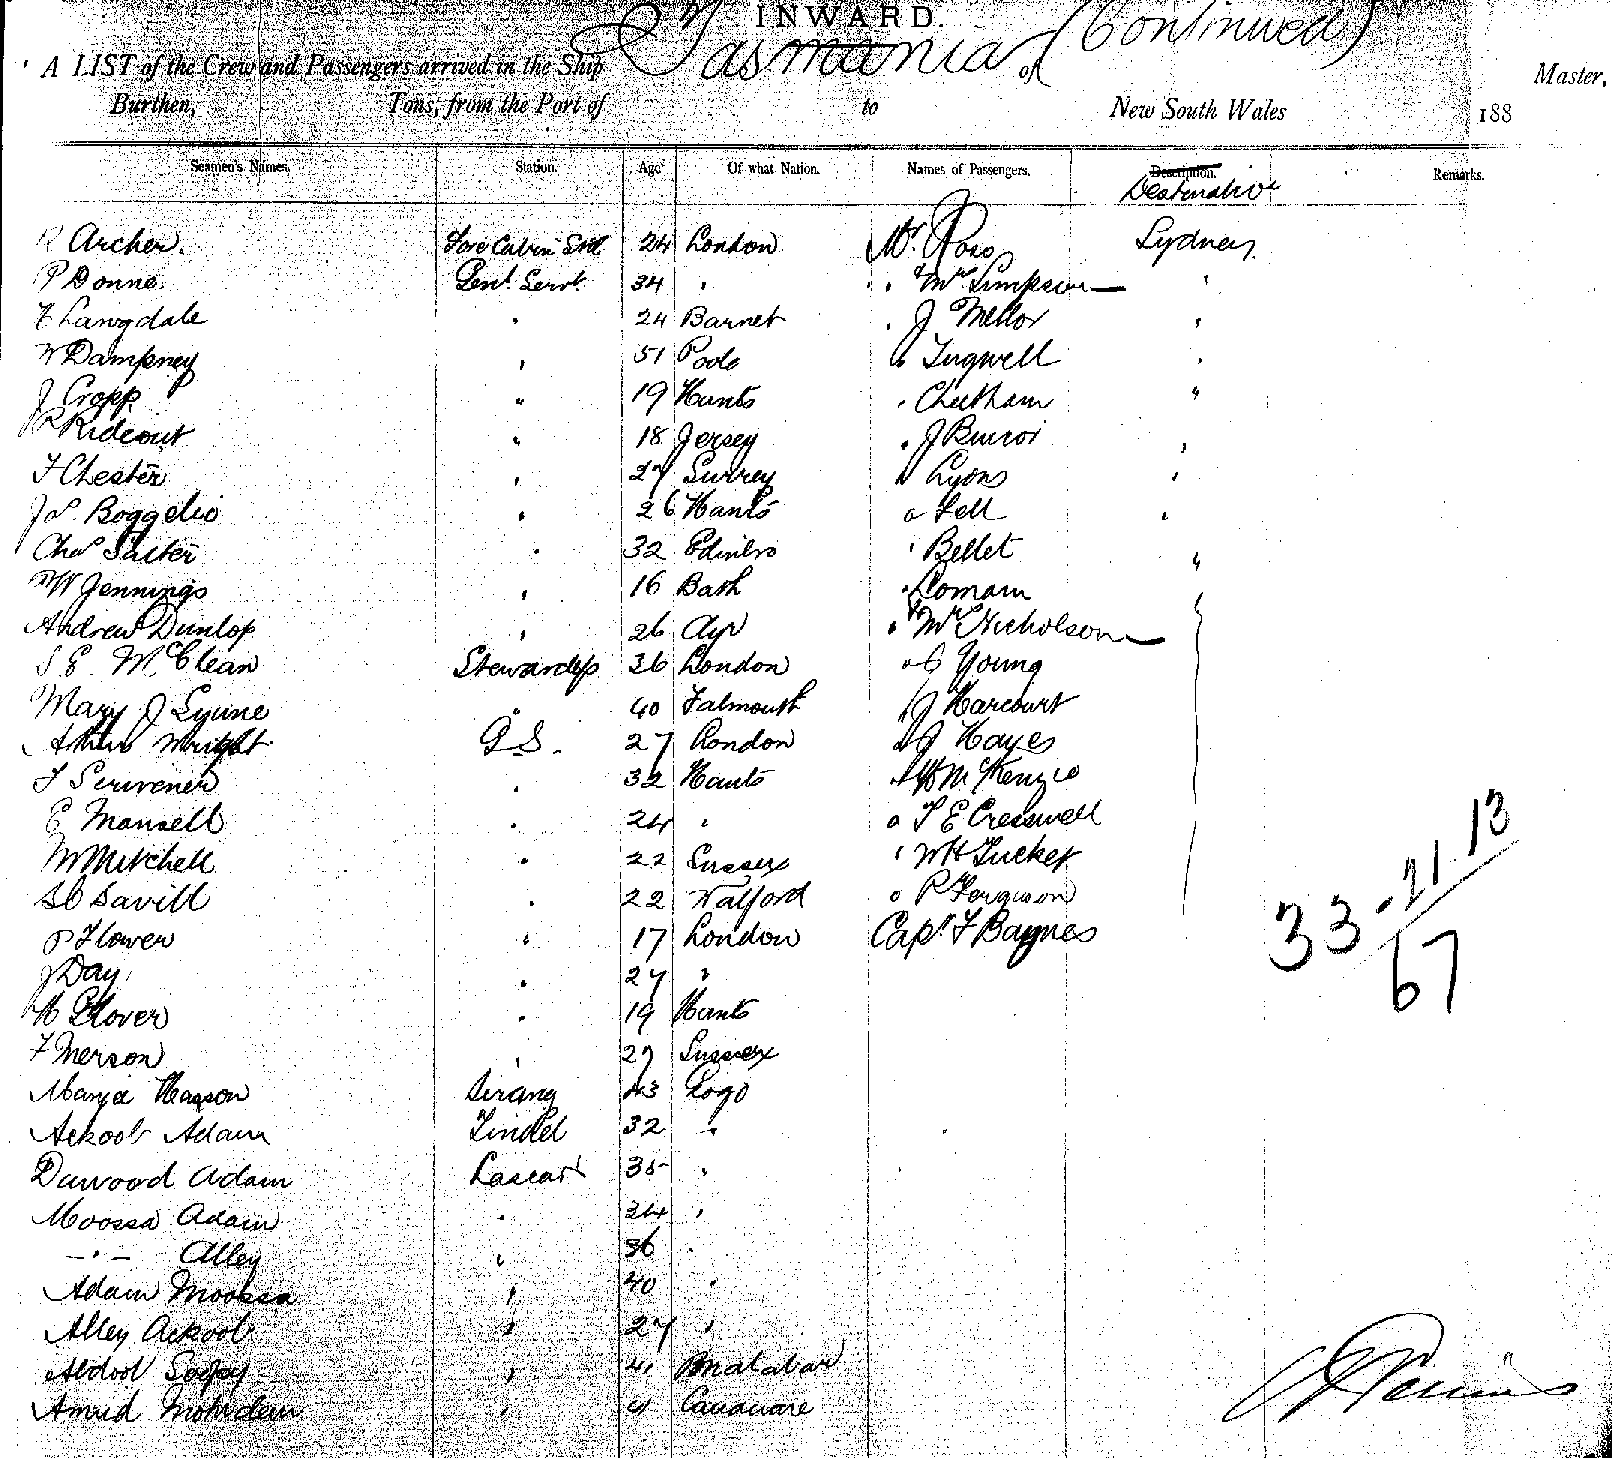 INWARD.
Tasmania (Continued)
A LIST of the Crew and Passengers arrived in the Ship of Master,
Burthen, Tons, from the Port of to New South Wales 188
Seamen's Names. Station. Age Of what Nation. Names of Passengers. Description. Remarks.
Destination
R Archer. Fore Cabin Std. 24 London Mr. Ross Sydney
P Donne Genl. Servt. 34 " " + Mrs Simpson "
F Langdale " 24 Barnet " J Mellor "
W Dampney " 51 Poole " Tugwell "
J Cropp " 19 Hants " Cheetham "
R Rideout " 18 Jersey " J "
F Chester " 27 Surrey " Lyons "
Jos. Boggelio " 26 Hants " Fell "
Chas Salter " 32 Edinbro " Bellet "
W Jennings " 16 Bath "
Andrew Dunlop " 26 Ayr " + Mrs Nicholson
S E McClean Stewardess 36 London " G Young
Mary J Lynne " 40 Falmouth " J Harcourt
Arthur Wright G.S. 27 London " J Hayes
F Scrivener " 32 Hants " McKenzie
E Mansell " 24 " " T E Cresswell
W Mitchell " 22 Sussex " W H Tucker
Savill " 22 Watford " P Ferguson
P Flower " 17 London Capt F Baynes
J Day " 27 "
H Glover " 19 Hants
F Merson " 27 Sussex
Hasson Serang 43 Gogo
Ackoob Adam Tindel 32 "
Dawood Adam Lascar 35 "
Moossa Adam " 34 "
— " — Alley " 36 "
Adam Moossa " 40 "
Alley Ackoob " 27 "
Abdool " 41 Malabar
" 41
33 . 21 . 13
67